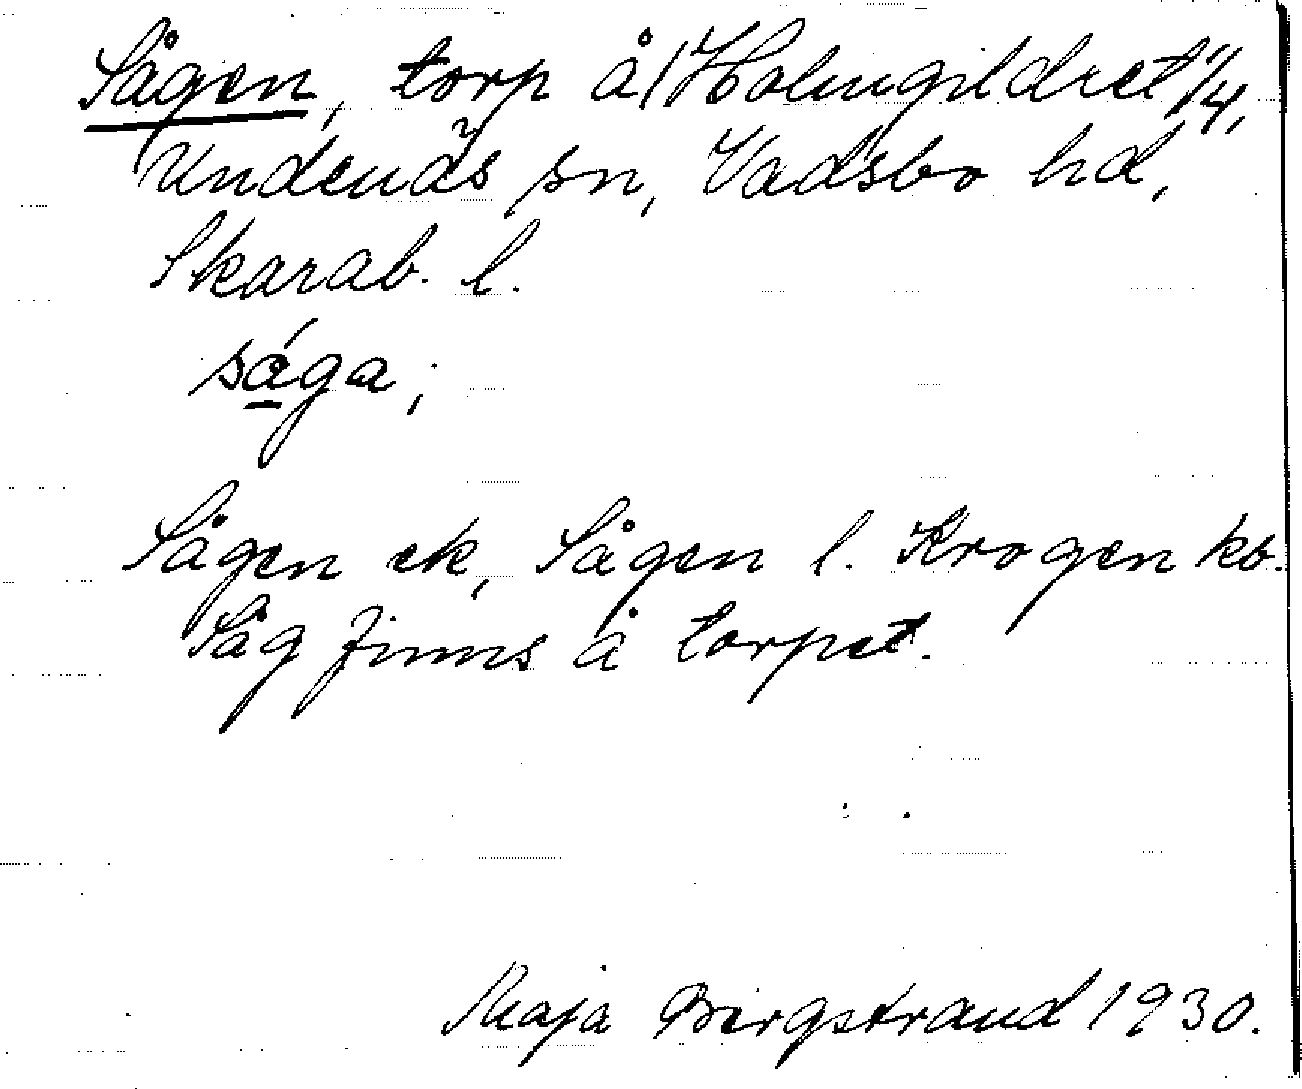 Sågen, torp å (Holmgildret 1/4,
Undenäs sn, Vadsbo hd,
Skarab. l.
sága;
Sågen ek, Sågen l. Krogen kb.
Såg finns å torpet.
Maja Bergstrand 1930.